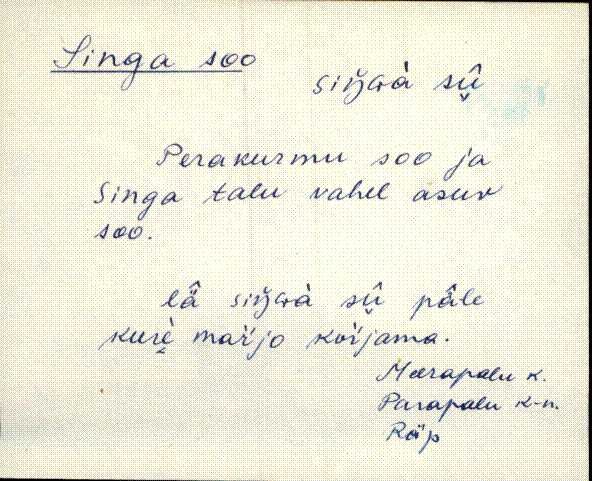 Singa soo
siŋ̆ɢà sû̬
Perakurmu soo ja
Singa talu vahel asuv
soo.
lǟ siŋ̆ɢà sû̬ pâle
kurè̬ mar̄jo kor̄jama.
Meerapalu k.
Parapalu k-n.
Räp